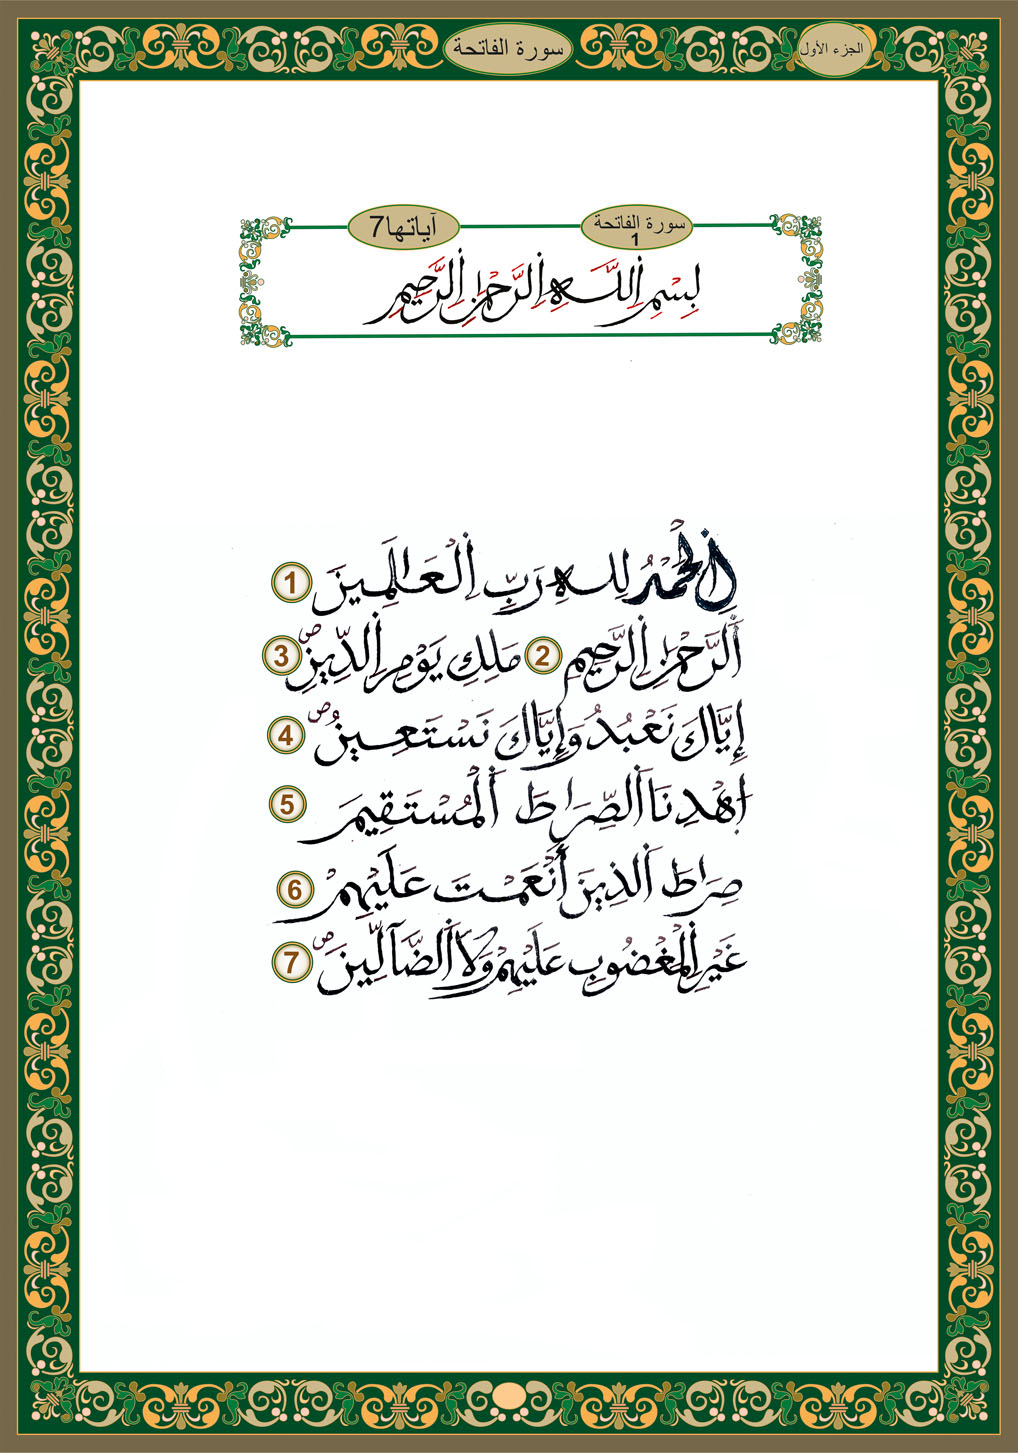 الجزء الأول
سورة الفاتحة
سورة الفاتحة
1
آياتها 7
بِسْمِ اِللَّهِ اِلرَّحْمَٰنِ اِلرَّحِيمِ
اِلْحَمْدُ لِلهِ رَبِّ اِلْعَٰلَمِينَ 1
اَلرَّحْمَٰنِ اِلرَّحِيمِ 2 مَلِكِ يَوْمِ اِلدِّينِ ص 3
إِيَّاكَ نَعْبُدُ وَإِيَّاكَ نَسْتَعِينُ ص 4
اِهْدِنَا اَلصِّرَٰطَ اَلْمُسْتَقِيمَ 5
صِرَٰطَ اَلذِينَ أَنْعَمْتَ عَلَيْهِمْ 6
غَيْرِ اِلْمَغْضُوبِ عَلَيْهِمْ وَلَا اَلضَّآلِّينَ ص 7